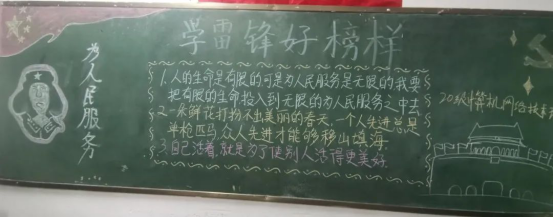 学雷锋好榜样
为人民服务
1.人的生命是有限的,可是为人民服务是无限的我要
把有限的生命投入到无限的为人民服务之中去
2.一条鲜花打扮不出美丽的春天,一个人先进总是
单枪匹马,众人先进才能够移山填海.
3.自己活着,就是为了使别人活得更美好.
20级计算机网络技术